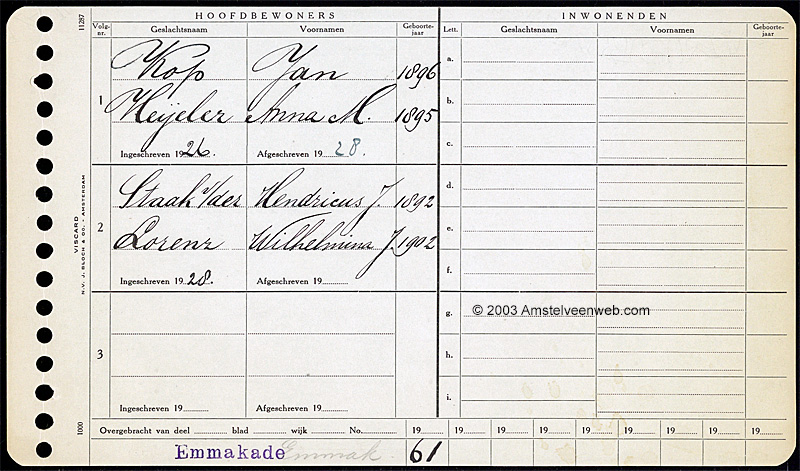 HOOFDBEWONERS INWONENDEN
Volg-nr. Geslachtsnaam Voornamen Geboorte-jaar Lett. Geslachtsnaam Voornamen Geboorte-jaar
11287
1
Kop Jan 1896
Heijeler Anna M. 1895
Ingeschreven 1926. Afgeschreven 1928.
a.
b.
c.
2
Staak v/der Hendricus J. 1892
Lorenz Wilhelmina J. 1902
Ingeschreven 1928. Afgeschreven 19
d.
e.
f.
VISCARD
N.V. J. BLOCH & CO. - AMSTERDAM
3
Ingeschreven 19 Afgeschreven 19
g.
h.
i.
© 2003 Amstelveenweb.com
1000
Overgebracht van deel blad wijk No. 19 19 19 19 19 19 19 19 19
Emmakade Emmak. 61